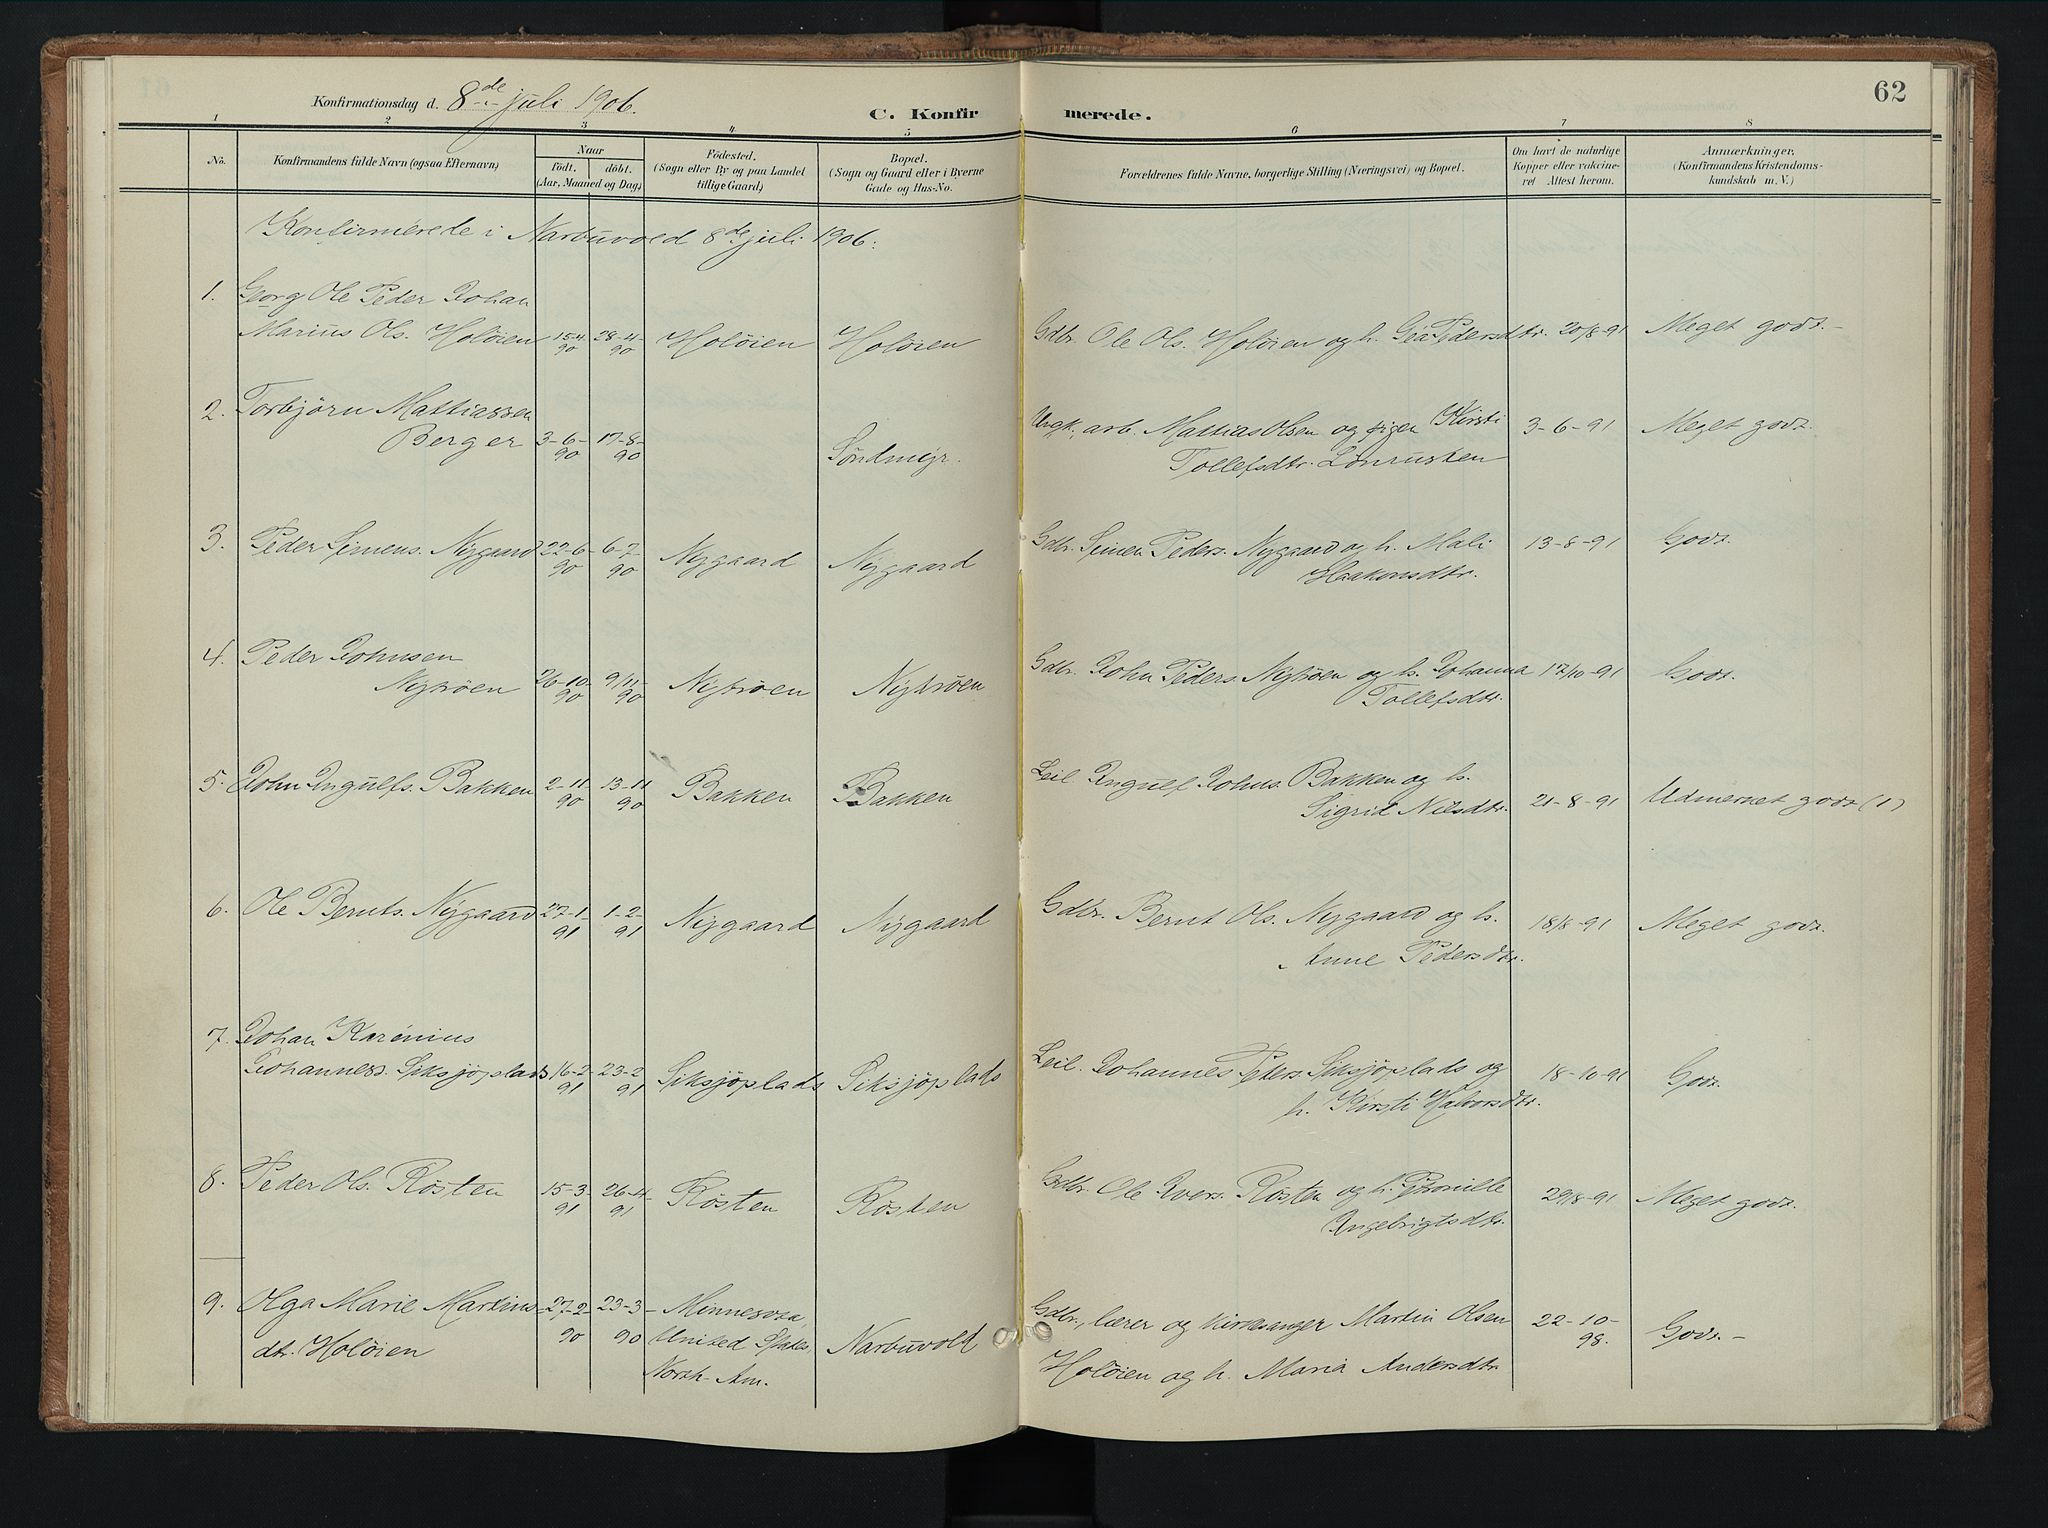 62
Konfirmationsdag d. 8de juli 1906.
C. Konfirmerede.
1 2 3 4 5 6 7 8
No. Konfirmandens fulde Navn (ogsaa Efternavn) Naar født. døbt. (Aar, Maaned og Dag) Fødested. (Sogn eller By og paa Landet tillige Gaard) Bopæl. (Sogn og Gaard eller i Byerne Gade og Hus-No. Forældrenes fulde Navne, borgerlige Stilling (Næringsvei) og Bopæl. Om havt de naturlige Kopper eller vakcineret Attest herom. Anmærkninger. (Konfirmandens Kristendomskundskab m. V.)
Konfirmerede i Narbuvold 8de juli 1906:
1. Georg Ole Peder Johan
Marius Ols. Holøien 15-4-90 28-4-90 Holøien Holøien Gdbr. Ole Ols. Holøien og h. Gea Pedersdtr. 20/8-91 Meget godt.-
2. Torbjørn Mattiassen
Berger 3-6-90 17-8-90 Søndmejr. Ungk., arb. Mattias Olsen og pigen Kirsti 3-6-91 Meget godt.
Tollefsdtr. Lønrusten
3. Peder Simens. Nygaard 22-6-90 6-7-90 Nygaard Nygaard Gdbr. Simen Peders. Nygaard og h. Mali 13-8-91 Godt.
Haakonsdtr.
4. Peder Johnsen
Nytrøen 26-10-90 9/11-90 Nytrøen Nytrøen Gdbr. John Peders. Nytrøen og h. Johanna 17/10-91 Godt.
Tollefsdtr.
5. John Ingulfs. Bakken 2-11-90 13-11-90 Bakken Bakken Leil. Ingulf Johns. Bakken og h.
Sigrid Nilsdtr. 21-8-91 Udmerket godt (1)
6. Ole Bernts. Nygaard 27-1-91 1-2-91 Nygaard Nygaard Gdbr. Bernt Ols. Nygaard og h. 18/8-91 Meget godt.
Anne Pedersdtr.
7. Johan Karenius
Johanness. Siksjøplads 16-2-91 23-2-91 Siksjøplads Siksjøplads Leil. Johannes Peters. Siksjøplads og 18-10-91 Godt.
h. Kirsti Halvorsdtr.
8. Peder Ols. Røsten 15-3-91 26-4-91 Røsten Røsten Gdbr. Ole Ivers. Røsten og h. Petronille 29/8-91 Meget godt.
Ingebrigtsdtr.
9. Olga Marie Martins- 27-2-90 23-3-90 Minnesota, Gdbr., lærer og kirkesanger Martin Olsen 22-10-98. Godt.-
dtr. Holøien United States, Narbuvold Holøien og h. Maria Andersdtr.
North-Am.